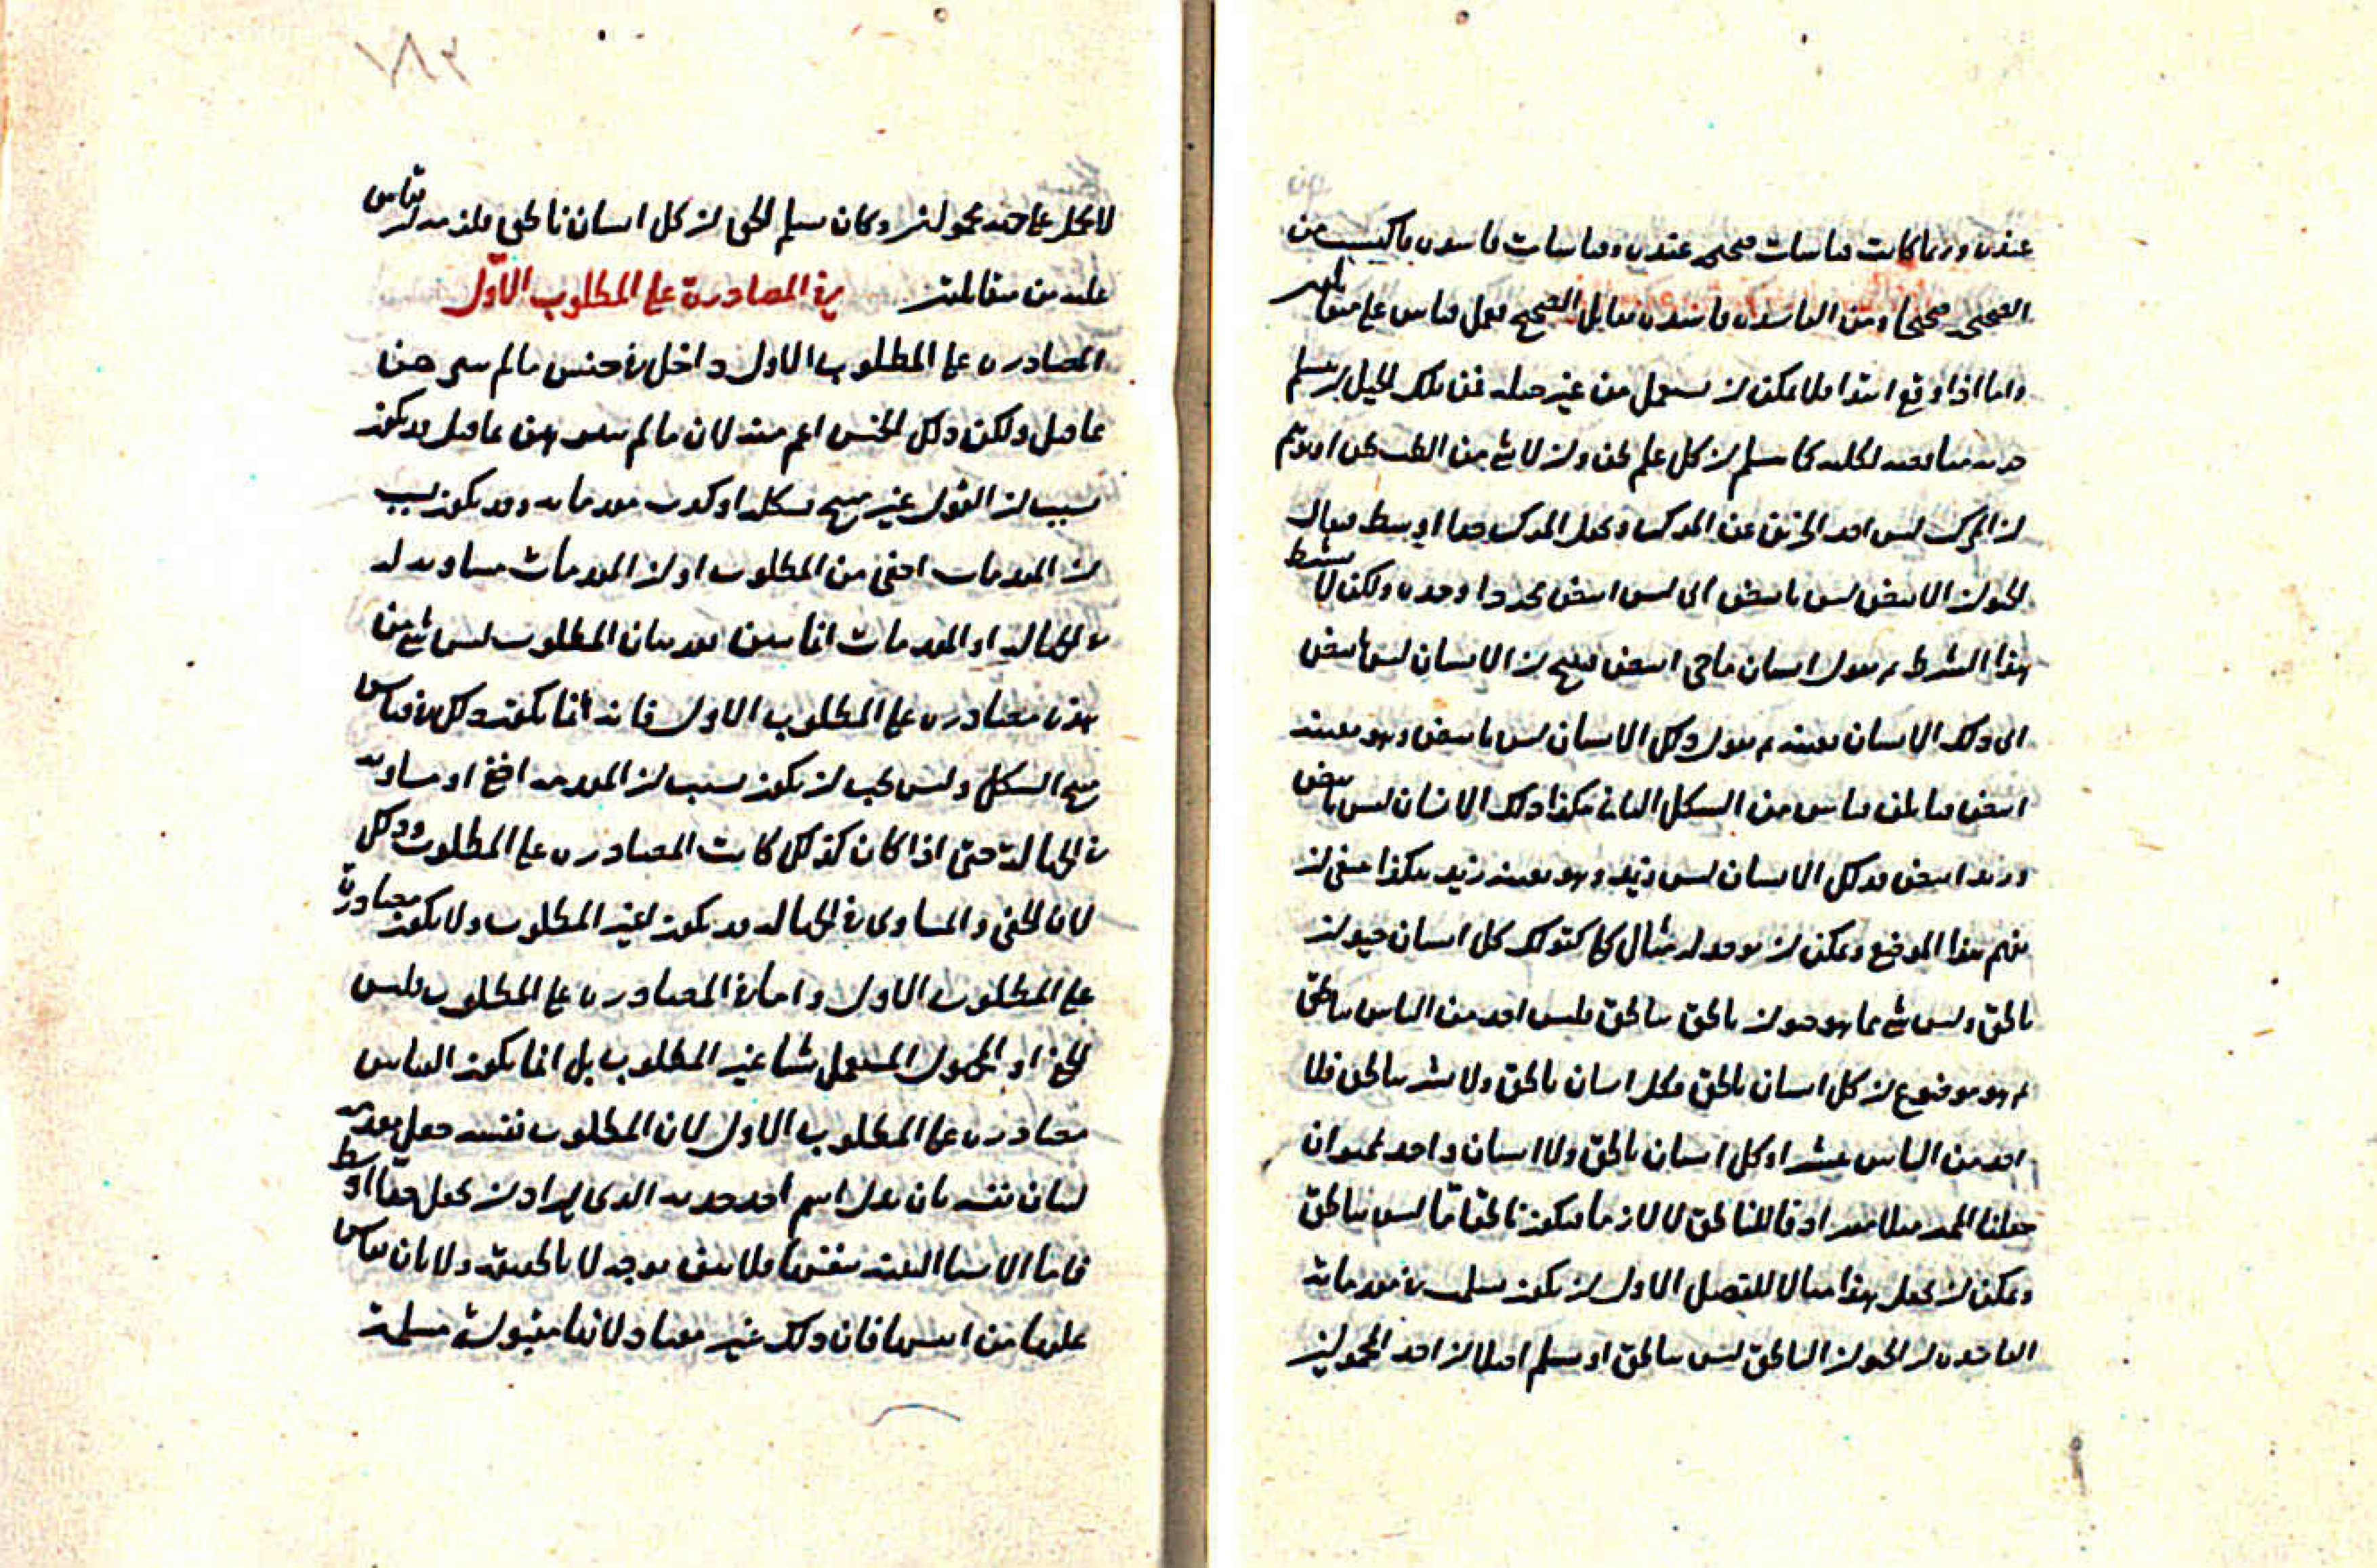 عنده وربما كانت قياسات صحيحه عنده وقياسات فاسده فاكتسب من
الصحيح صحيحا ومن الفاسده فاسده تقابل الصحيح فعمل قياس على متقابلين
واما اذا وقع ابتدا فلا يمكن ان يستعمل من غير حيله فمن تلك الحيل ان يتسلم
جزئيه مناقضه لكليه كما يتسلم ان كل علم ظن وان لا شي من الطب ظن او يوهم
ان المركب ليس احد الجزئين عن المركب ويجعل المركب حدا اوسط فيقال
الحيوان الابيض ليس بابيض اي ليس ابيض مجردا وحده ولكن لا يشترط
هذا الشرط ثم يقول انسان ما حي ابيض فينتج ان الانسان ليس بابيض
اي ذلك الانسان بعينه ثم يقول وكل الانسان ليس بابيض وهو بعينه
ابيض قياس من الشكل الثاني هكذا ذلك الانسان ليس بابيض
وزيد ابيض فذلك الانسان ليس زيد وهو بعينه زيد هكذا ينبغي ان
يفهم هذا الموضع ويمكن ان يوجد له مثال كلي كقولك كل انسان حيوان
ناطق وليس شي مما هو حيوان ناطق بناطق فليس احد من الناس بناطق
ثم هو موضوع ان كل انسان ناطق فكل انسان ناطق ولا بشر بناطق فلا
احد من الناس ببشر او كل انسان ناطق ولا انسان واحد بحيوان
جعلنا الحد مثلا مرادفا للناطق لا لازما فيكون ناطق ما ليس بناطق
ويمكن ان يجعل هذا مثالا للفصل الاول ان يكون يتسلم في مقدماته
الفاسده ان الحيوان الناطق ليس بناطق او يسلم اصلا ان احد المحمولين
لا يحمل على حده محمولين وكان يسلم الحي ان كل انسان ناطق فلزمه قياس
عليه من متقابلتين في المصادرة على المطلوب الاول
المصادره على المطلوب الاول داخل في جنس ما لم يبرهن
عاقل ولكن ذلك الجنس اعم منه لان ما لم يبرهن عاقل قد يكون
بسبب ان القول غير منتج بشكله او كذب مقدماته وقد يكون بسبب
ان المقدمات اخفى من المطلوب او ان المقدمات مساويه له
في الجهاله او المقدمات انما تبين بعد بيان المطلوب ليس شي من
هذه مصادره على المطلوب الاول فانه انما يكون ذلك في قياس
منتج الشكل وليس يجب ان يكون بسبب ان المقدمه اخفى او مساويه
في الجهالة حتى اذا كان كذلك كانت المصادره على المطلوب وذلك
لان الخفي والمساوي في الجهاله قد يكون غير المطلوب ولا يكون مصادرة
على المطلوب الاول واما في المصادره على المطلوب فليس
الخفي او المجهول المستعمل شيا غير المطلوب بل انما يكون القياس
مصادره على المطلوب الاول لان المطلوب نفسه جعل مقدمه
لبيان نفسه بان بدل اسم احد حديه الذي يراد ان يجعل حدا اوسط
فاما الاشيا البينه بنفسها فلا تبين بوجه لا بالحقيقه ولا بان يقاس
عليها من انفسها فان ذلك غير معتاد لانها مقبولة مسلمة